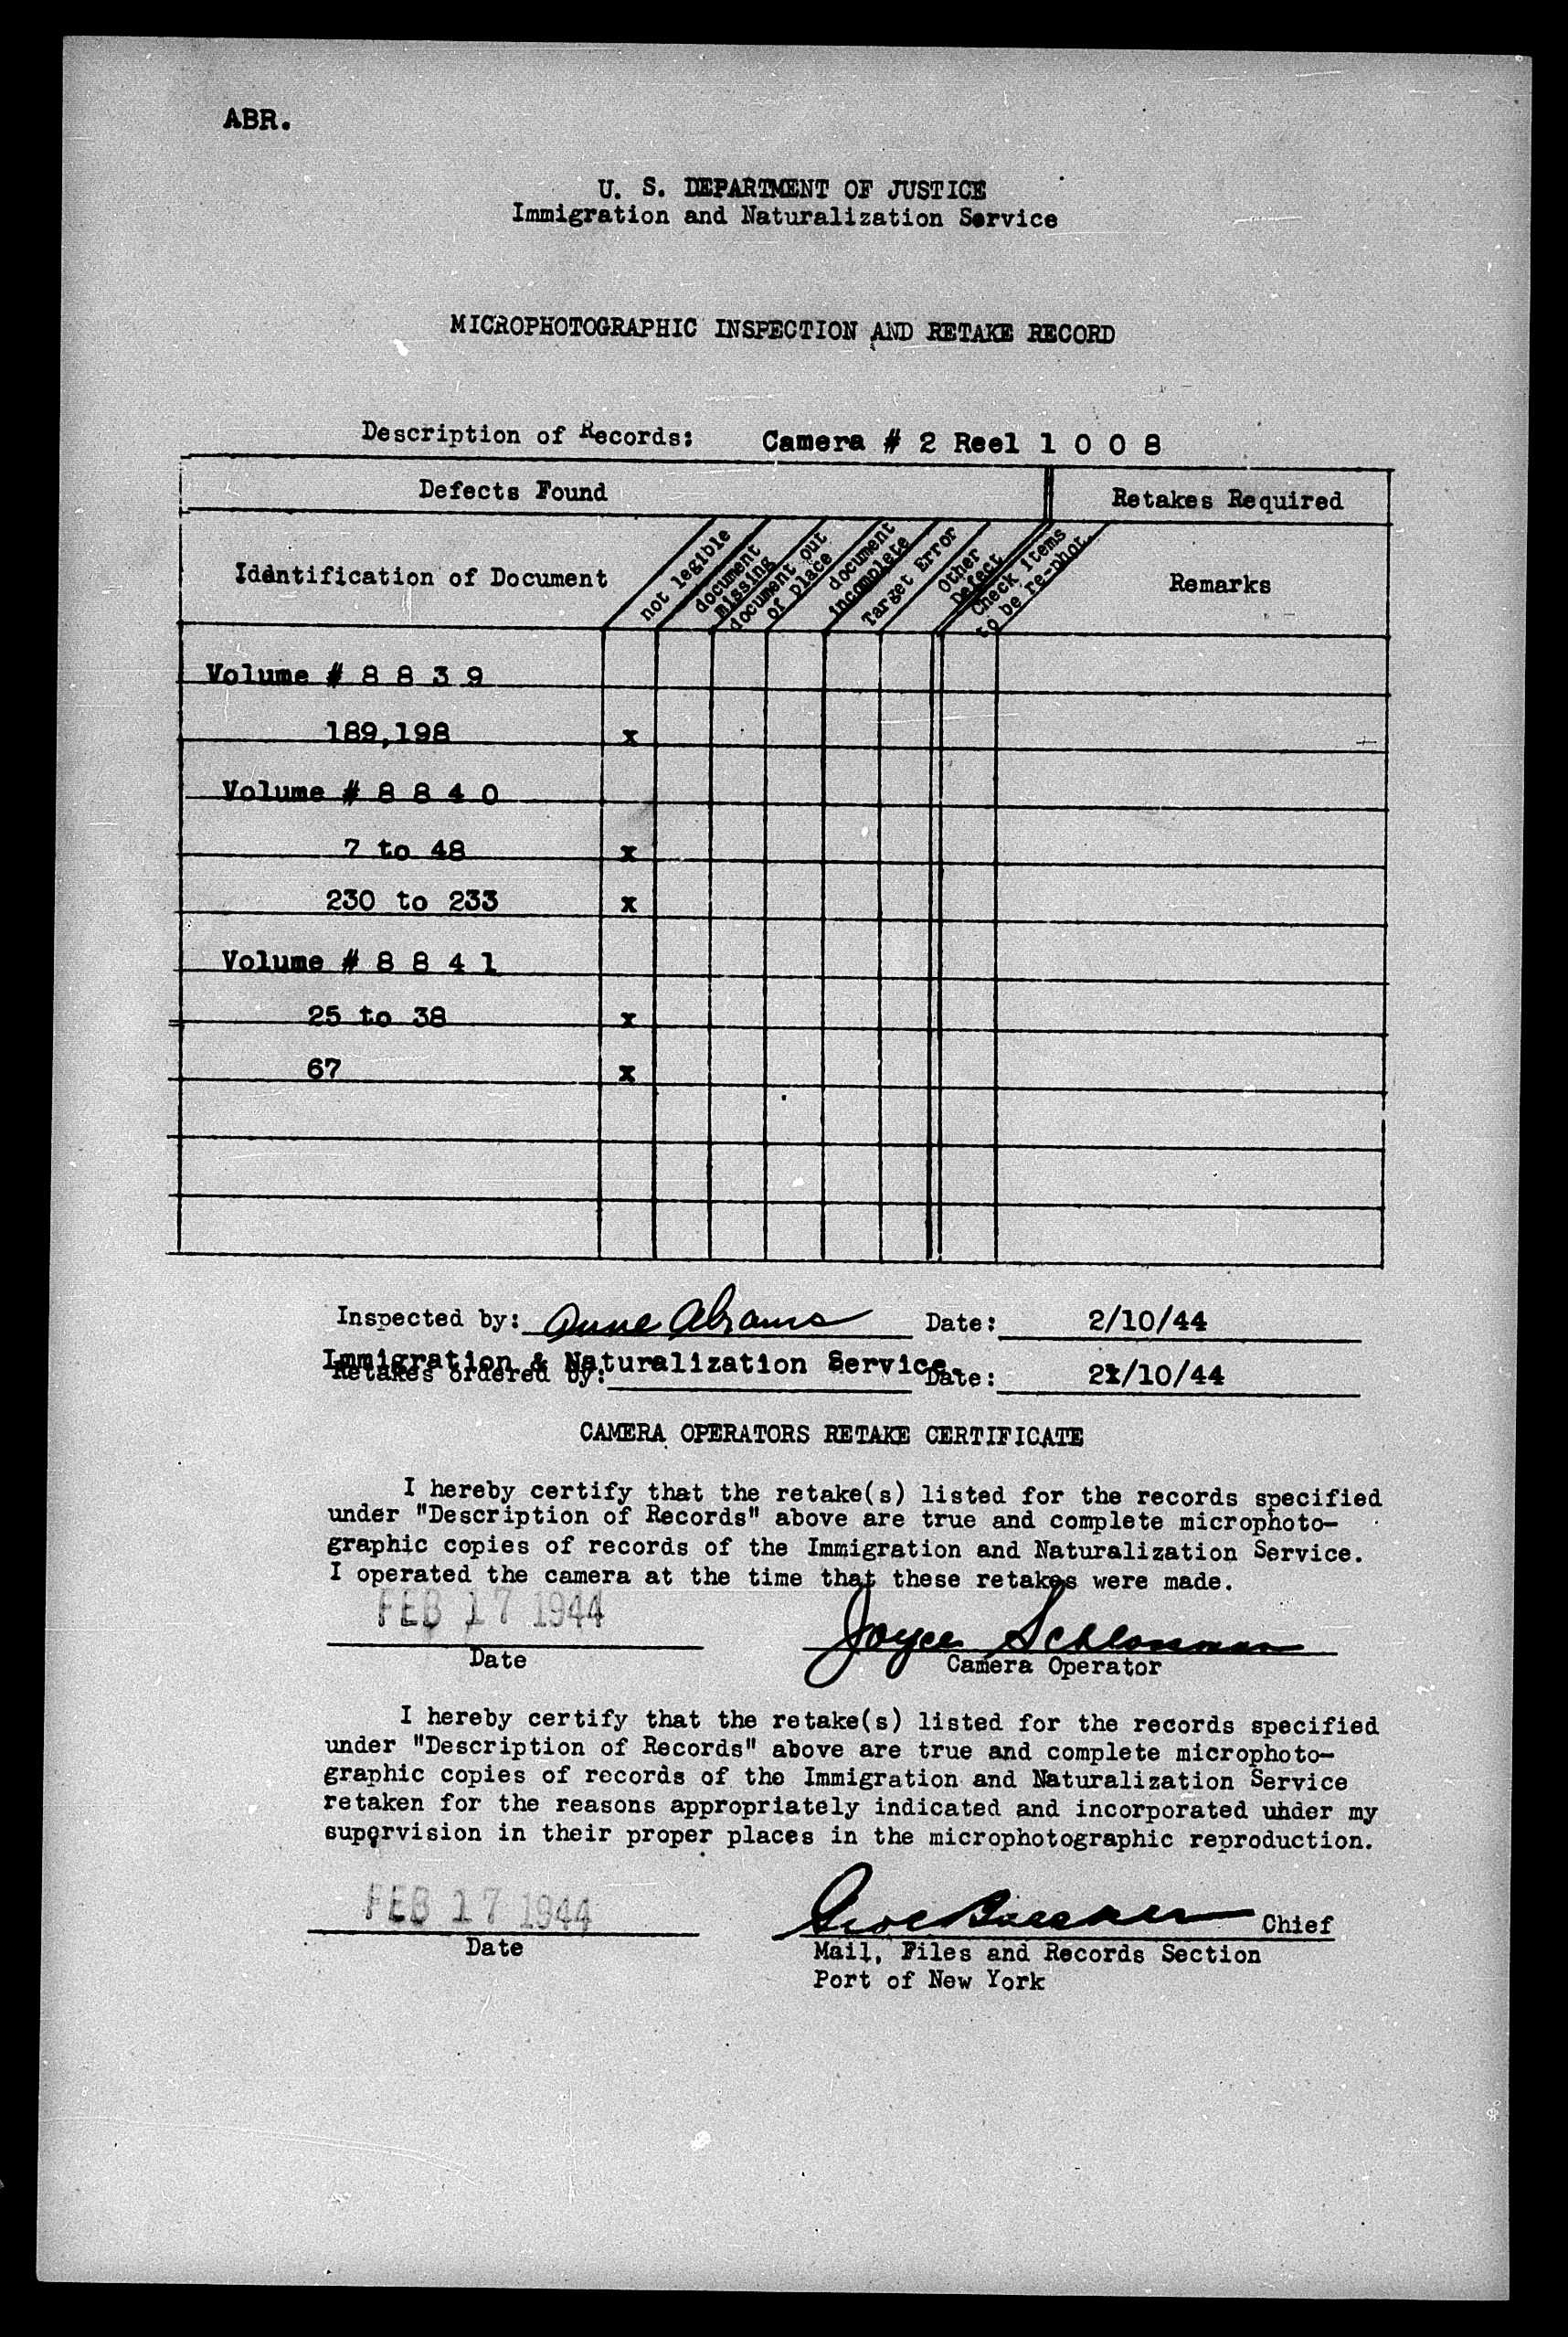 ABR.
U. S. DEPARTMENT OF JUSTICE
Immigration and Naturalization Service
MICROPHOTOGRAPHIC INSPECTION AND RETAKE RECORD
Description of Records: Camera # 2 Reel 1 0 0 8
Defects Found Retakes Required
Identification of Document
not legible
document
missing
document out
of place
document
incomplete
Target Error
Other
Defect
Check items
to be re-phot.
Remarks
Volume # 8 8 3 9
189,198 x
Volume # 8 8 4 0
7 to 48 x
230 to 233 x
Volume # 8 8 4 1
25 to 38 x
67 x
Inspected by: Anne Abrams Date: 2/10/44
Immigration & Naturalization Service.
Retakes ordered by: Date: 2/10/44
CAMERA OPERATORS RETAKE CERTIFICATE
I hereby certify that the retake(s) listed for the records specified
under "Description of Records" above are true and complete microphoto-
graphic copies of records of the Immigration and Naturalization Service.
I operated the camera at the time that these retakes were made.
FEB 17 1944 Joyce
Date Camera Operator
I hereby certify that the retake(s) listed for the records specified
under "Description of Records" above are true and complete microphoto-
graphic copies of records of the Immigration and Naturalization Service
retaken for the reasons appropriately indicated and incorporated under my
supervision in their proper places in the microphotographic reproduction.
FEB 17 1944 Chief
Date Mail, Files and Records Section
Port of New York